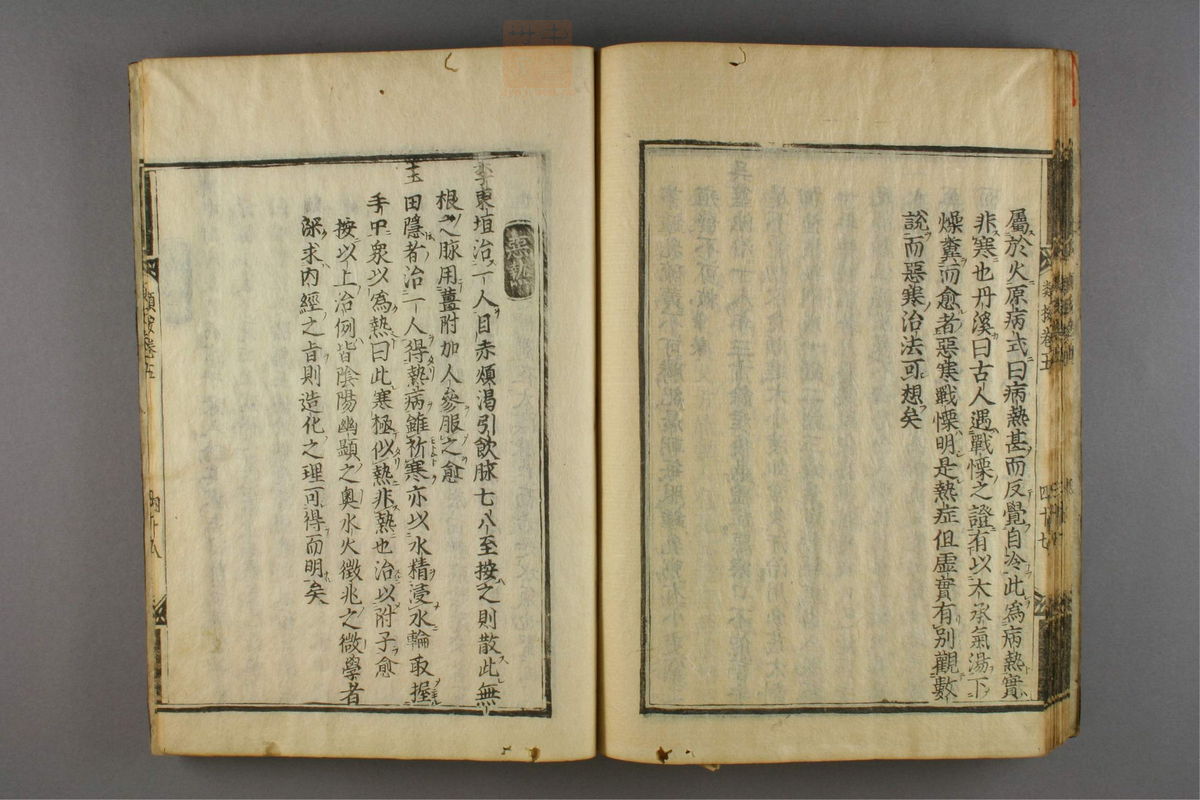 類按卷五
四十七
屬於火原病式曰病熱甚而反覺自冷此為病熱實
非寒也丹溪曰古人遇戰慄之證有以大承氣湯下
燥糞而愈者惡寒戰慄明是熱症但虛實有別觀數
說而惡寒治法可想矣
惡熱
李東垣治一人目赤煩渴引飲脉七八至按之則散此無
根之脉用薑附加人參服之愈
玉田隱者治一人得熱病雖祈寒亦以水精浸水輪取握
手中衆以為熱曰此寒極似熱非熱也治以附子愈
按以上治例皆陰陽幽顯之奧水火徵兆之微學者
深求內經之旨則造化之理可得而明矣
類按卷五
四十八